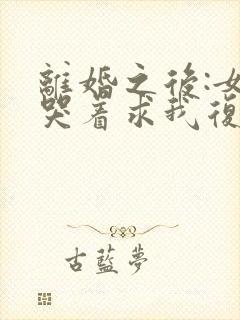 離婚之後:女
哭着求我復
古藍夢